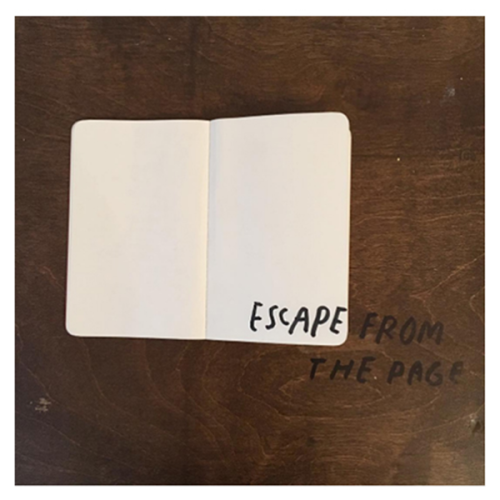 ESCAPE FROM
THE PAGE